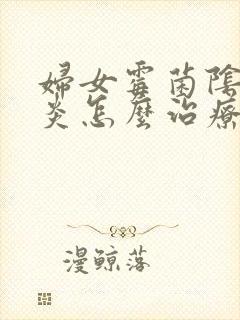 婦女霉菌陰
炎怎麼治療
漫鲸落